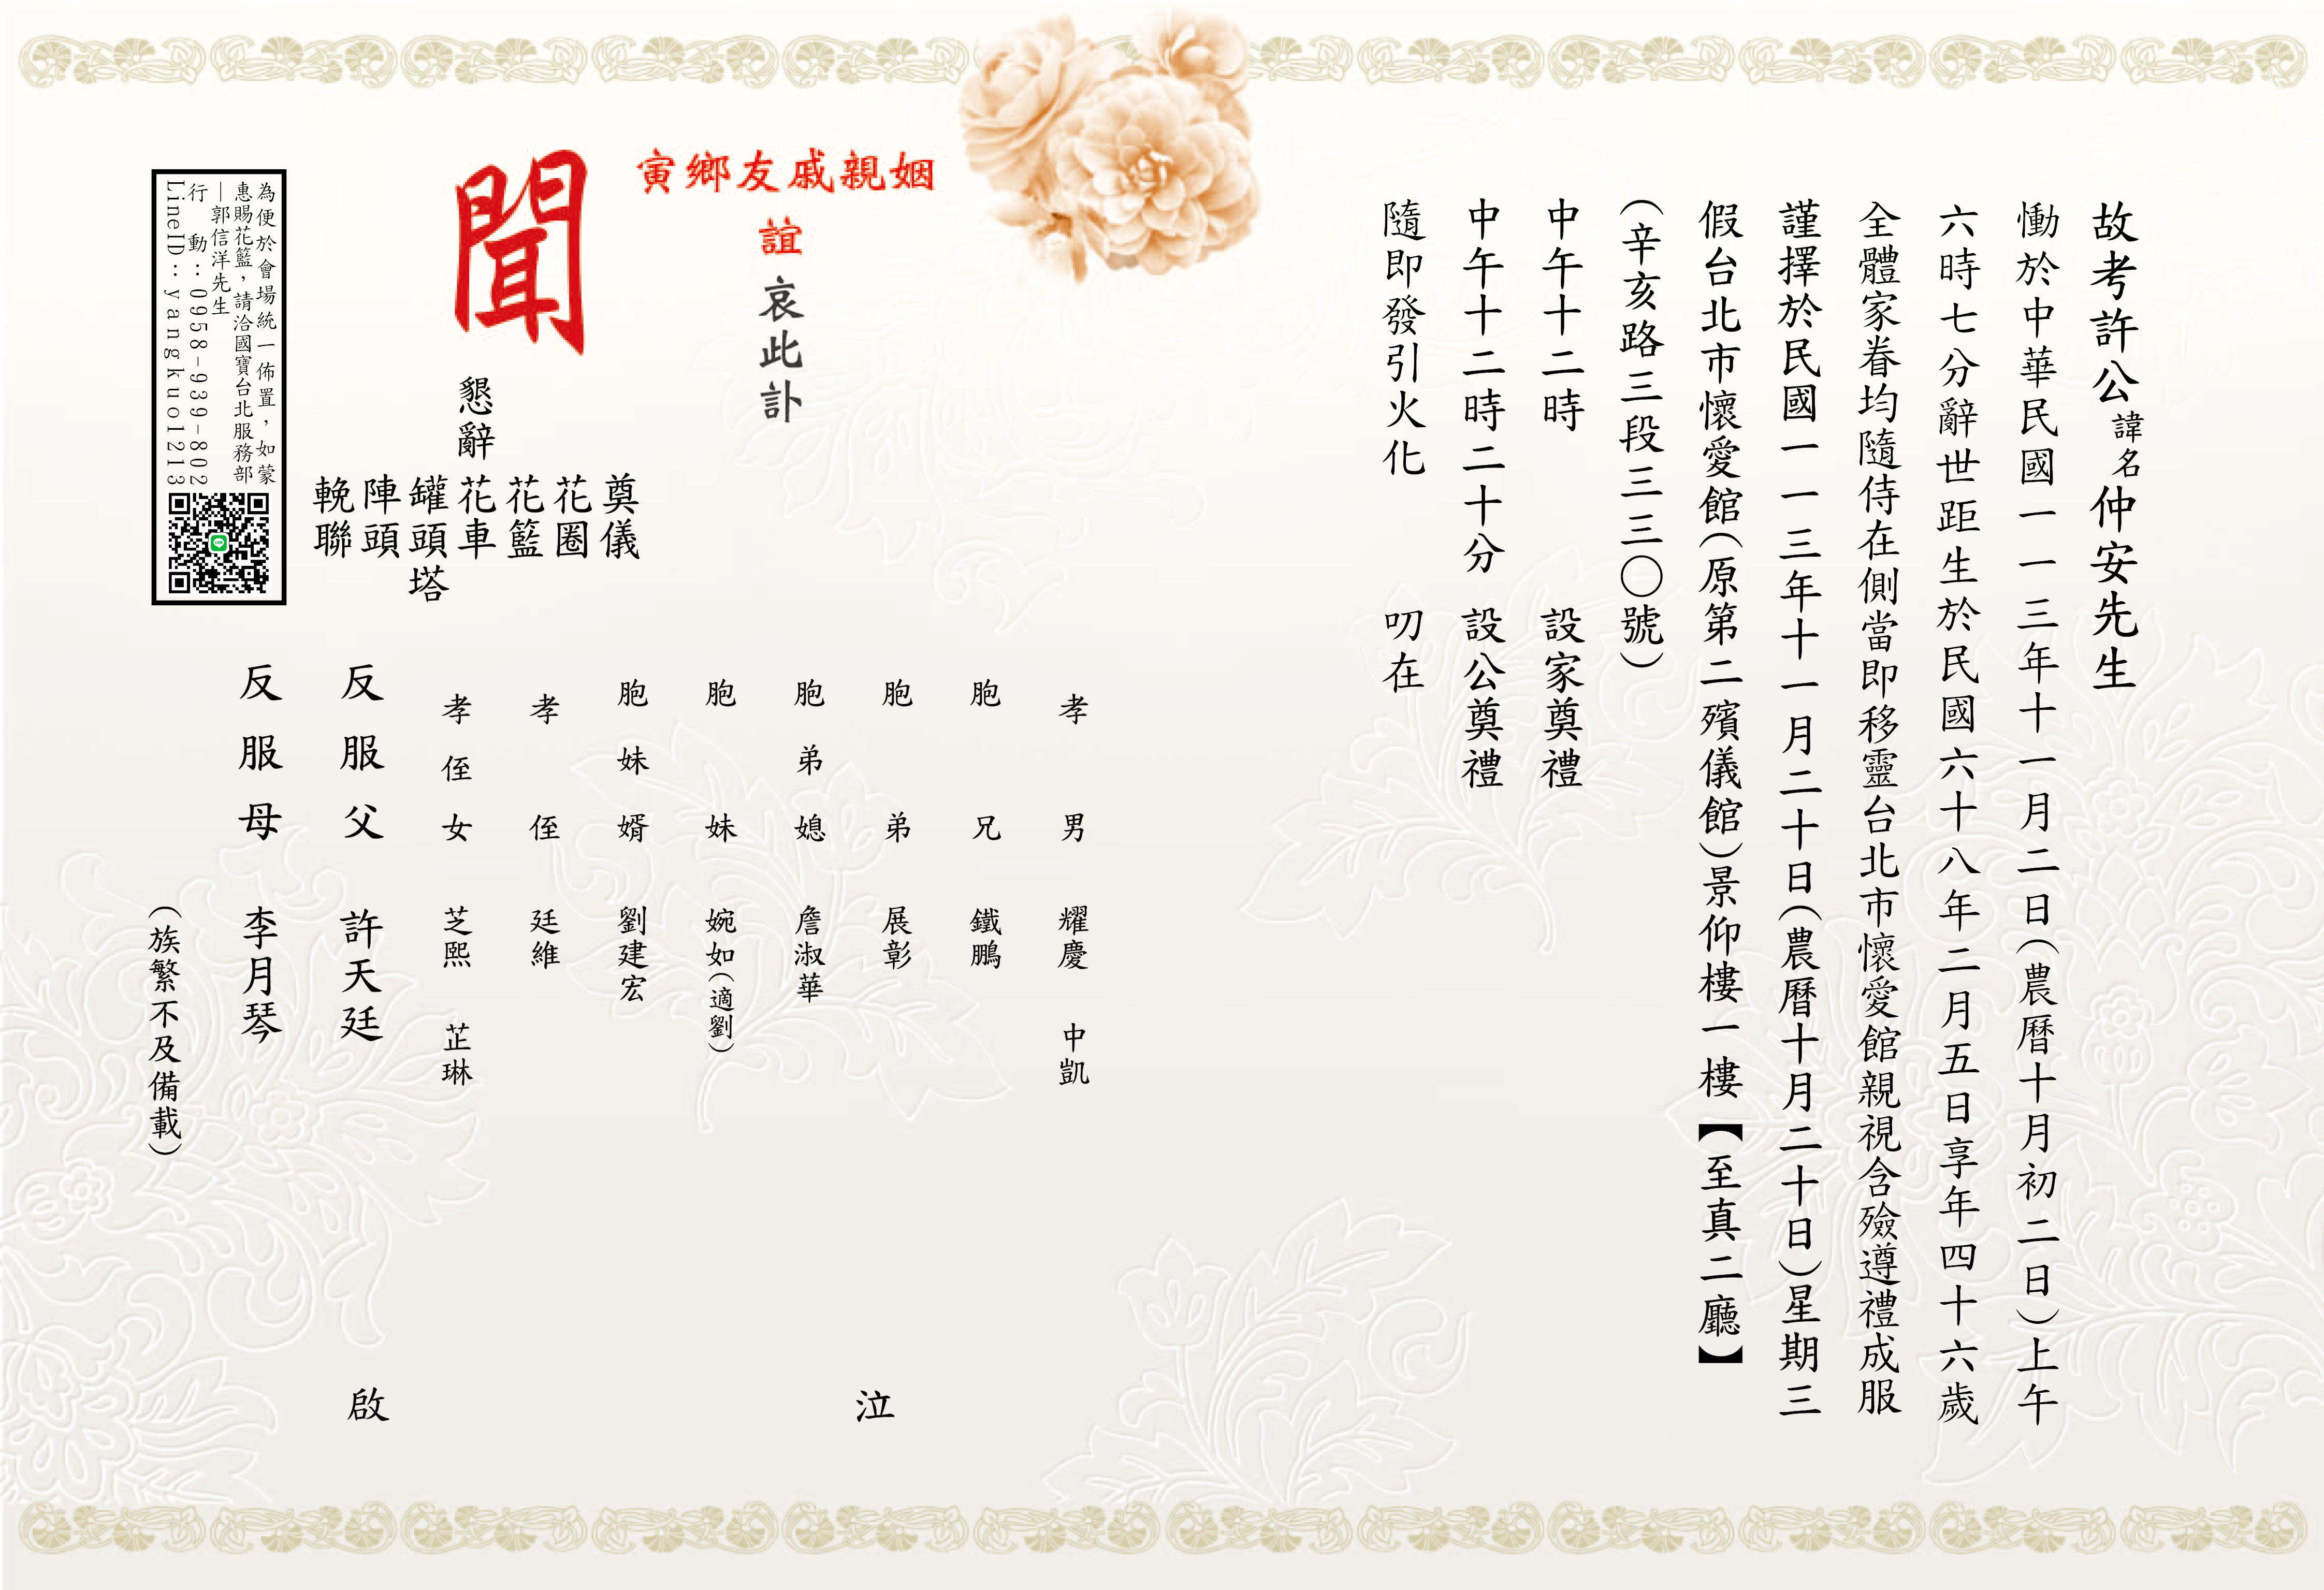 故考許公諱名仲安先生
慟於中華民國一一三年十一月二日(農曆十月初二日)上午
六時七分辭世距生於民國六十八年二月五日享年四十六歲
全體家眷均隨侍在側當即移靈台北市懷愛館親視含殮遵禮成服
謹擇於民國一一三年十一月二十日(農曆十月二十日)星期三
假台北市懷愛館(原第二殯儀館)景仰樓一樓【至真二廳】
(辛亥路三段三三〇號)
中午十二時 設家奠禮
中午十二時二十分 設公奠禮
隨即發引火化 叨在
姻親戚友鄉寅
誼哀此訃
聞
懇辭
奠儀
花圈
花籃
花車
罐頭塔
陣頭
輓聯
為便於會場統一佈置,如蒙
惠賜花籃,請洽國寶台北服務部
—郭信洋先生
行動:0958-939-802
LineID:yangkuo1213
孝男 耀慶 中凱
胞兄 鐵鵬
胞弟 展彰
胞弟媳 詹淑華
胞妹 婉如(適劉)
胞妹婿 劉建宏
孝侄 廷維
孝侄女 芝熙 芷琳
反服父 許天廷
反服母 李月琴
(族繁不及備載)
泣
啟